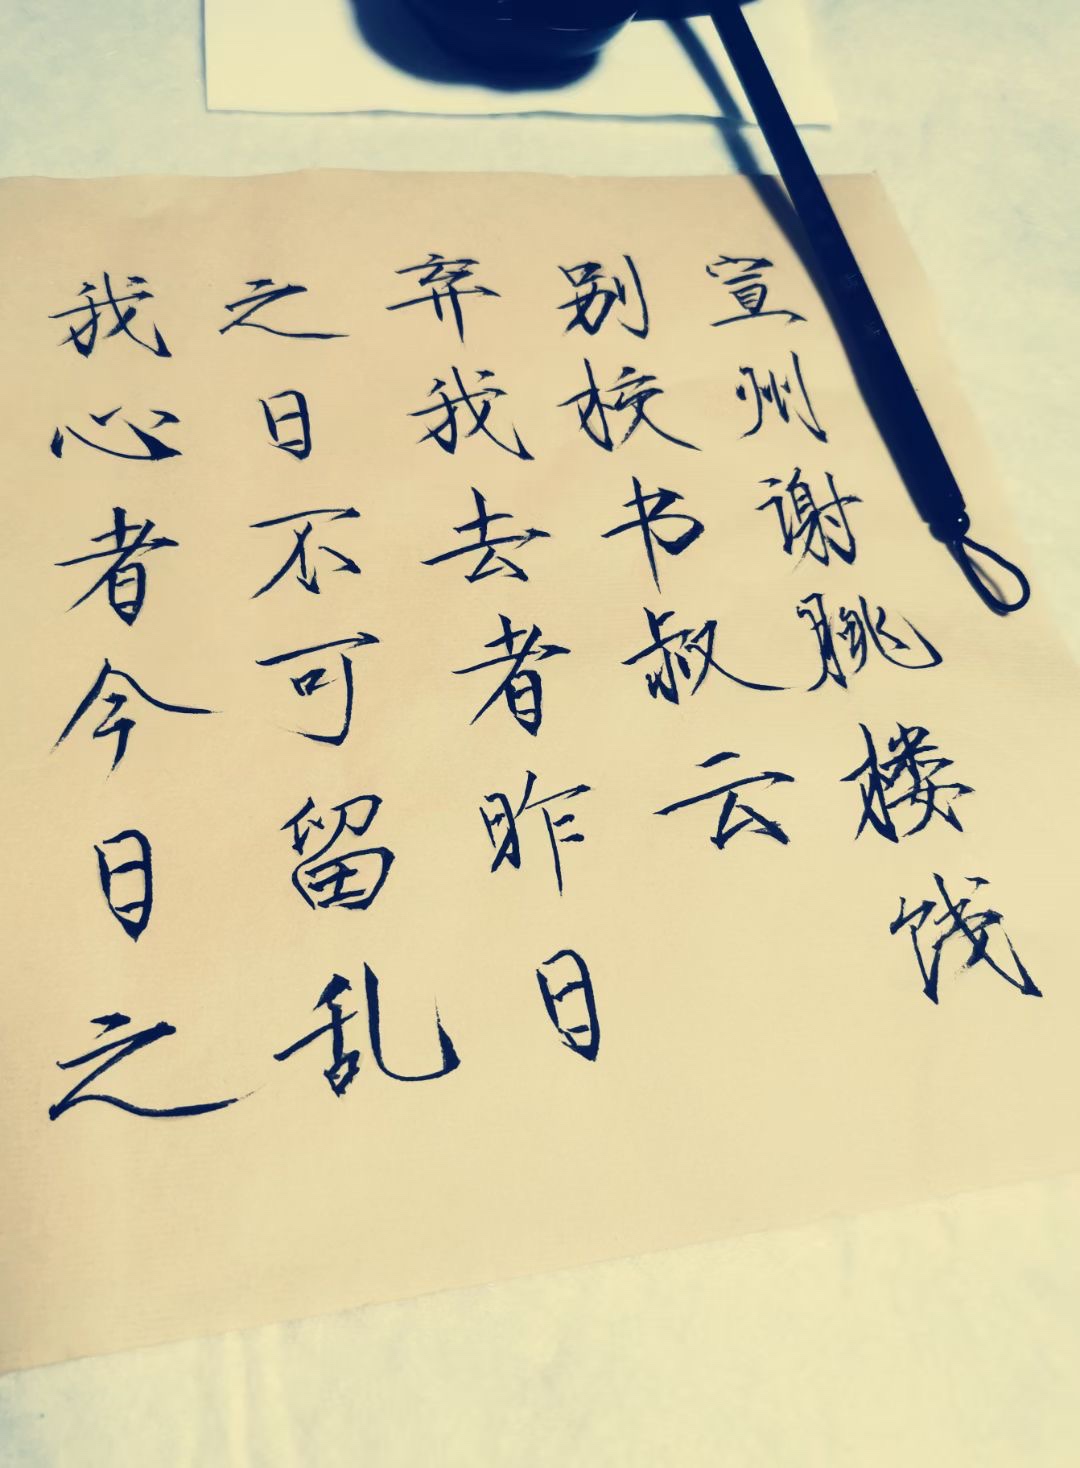 宣州谢朓楼饯
别校书叔云
弃我去者昨日
之日不可留乱
我心者今日之